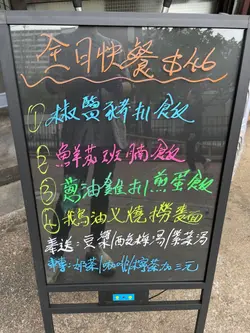 全日快餐 $46
① 椒鹽豬扒飯
② 鮮茄班腩飯
③ 蔥油雞扒煎蛋飯
④ 鵝油叉燒撈麵
奉送：豆漿/酸梅湯/紫菜湯
奶茶 檸茶加三元